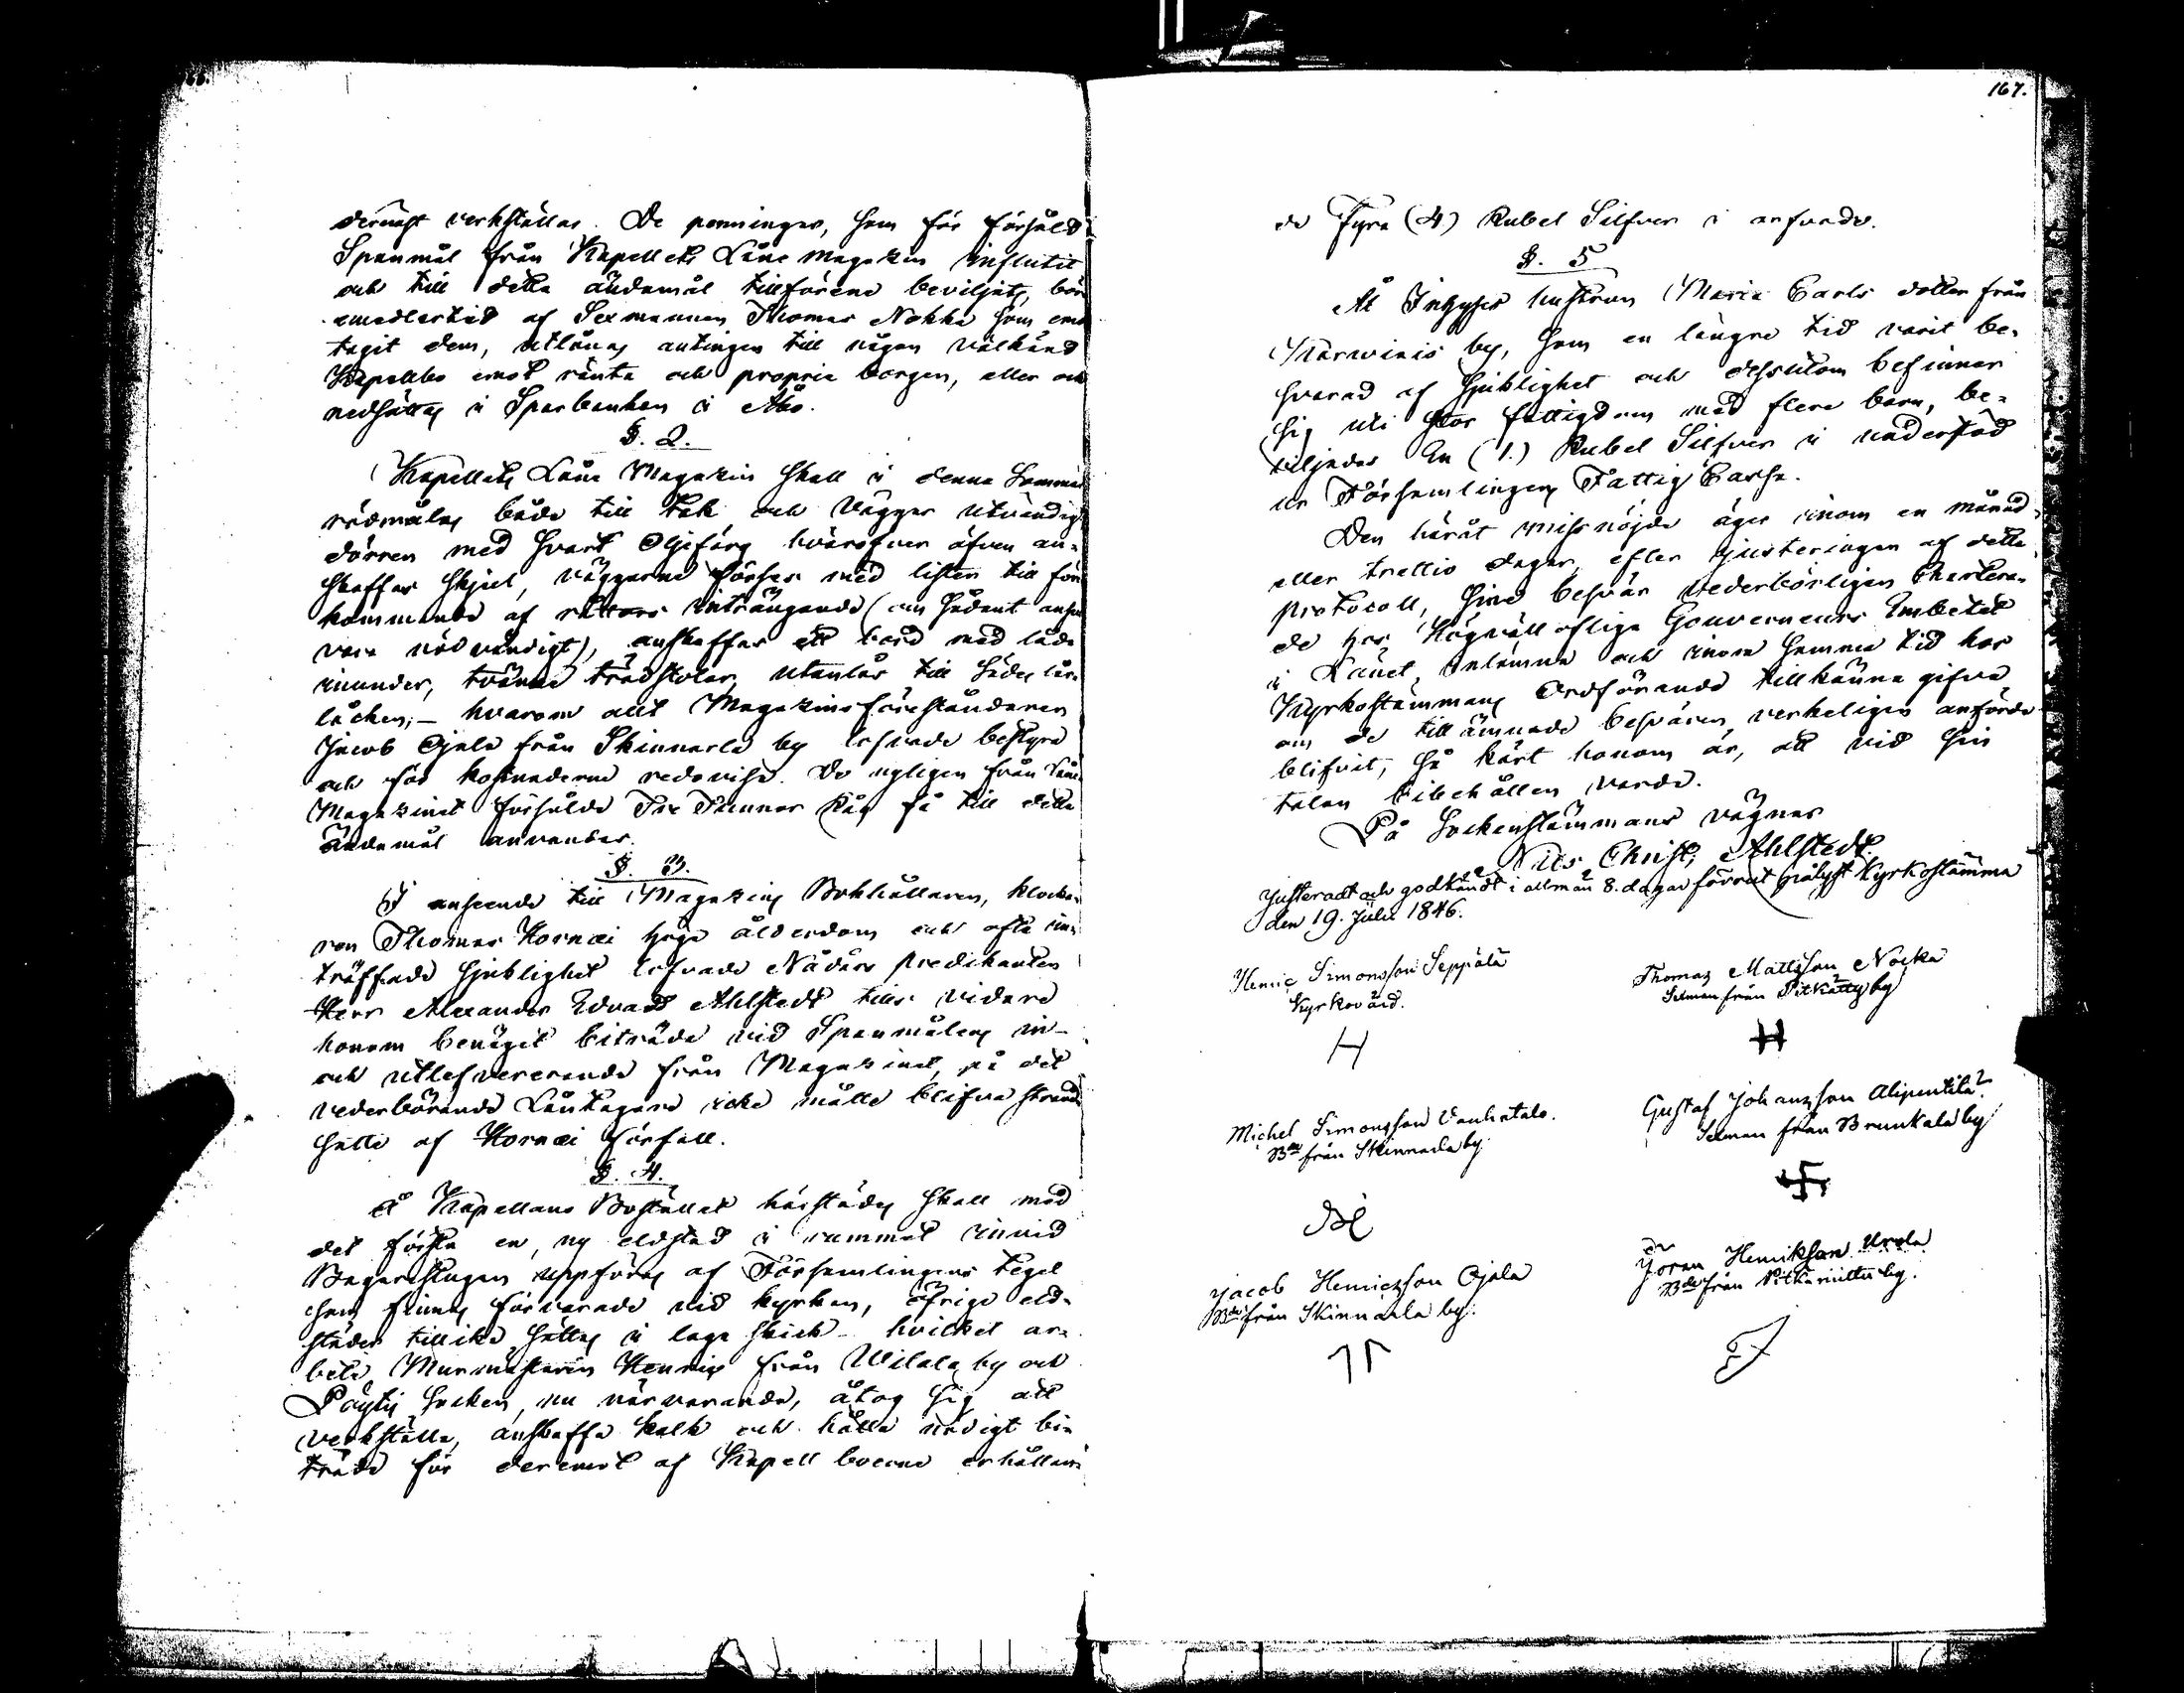 66.
dernäst verkställas. De penningar, som för försåld
Spanmål från Kapellets Låne magazin influtit
och till detta ändamål tillförene beviljats, bör
emedlertid af Sexmannen Thomas Nokka som emot
tagit dem, utlånas antingen till någon välkänd
Kapellbo emot ränta och proprie borgen, eller och
nedsättas i Sparbanken i Åbo.
§. 2.
Kapellets Låne Magazin skall i denna Sommar
rödmålas både till tak och väggar utvändigt
dörren med svart Oljefärg hvarofver äfven an-
skaffas skjul, väggarne förses med lister till före
kommande af råttors inträngande (om sådant anses
vara nödvändigt), anskaffas ett bord med låda
inunder, tvänne trädstolar, utanlås till Sädes lår-
locken; – hvarom allt Magazinsföreståndaren
Jacob Ojala från Skinnarla by lofvade bestyra
och för kostnaderne redovisa. De nyligen från Låne
Magazinet försålde Tre Tunnor Råg få till detta
ändamål användas.
§. 3.
I anseende till Magazins Bokhållaren, klocka-
ren Thomas Kornæi höga ålderdom och ofta in-
träffade sjuklighet lofvade Nådårs predikanten
Herr Alexander Edvard Ahlstedt tills vidare
honom benäget biträda vid Spanmålens in-
och utlefvererande från Magazinet, på det
vederbörande Låntagare icke måtte blifva strand
satte af Kornæi förfall.
§. 4.
Å Kapellans Bostället härstädes skall med
det första en ny eldstad i rummet invid
Bagarstugan uppföras af Församlingens tegel
som finnas förvarade vid kyrkan, öfrige eld-
städer tillika sättas i laga skick – hvilket ar-
bete Murmästaren Henric från Wilala by och
Pöytis socken, nu närvarande, åtog sig att
verkställa, anskaffa kalk och hålla nödigt bi-
träde för deremot af Kapell boerne erhållan-
167.
de Fyra (4) Rubel Silfver i arfvode.
§. 5
Åt Inhyses hustrun Maria Carls dotter från
Karwinis by, som en längre tid varit be-
svarad af sjuklighet och dessutom befinner
sig uti stor fattigdom med flera barn, be-
viljades En (1.) Rubel Silfver i understöd
ur Församlingens Fattig Cassa.
Den häråt missnöjde äger inom en månad
eller trettio dagar, efter justeringen af detta
protocoll, sine besvär vederbörligen Chartera-
de hos Högvälloflige Gouverneurs Embetet
i Länet inlämna och inom samma tid hos
Kyrkostämmans Ordförande tillkänna gifva
om de tillämnade besvären verkeligen anförde
blifvit, så kärt honom är, att vid sin
talan bibehållen varda.
På Sockenstämmans vägnar
Nils Christ. Ahlstedt.
Justeradt och godkändt i allmän 8. dagar förrut pålyst Kyrkostämma
den 19. Julii 1846.
Henric Simonsson Seppälä
Kyrkovärd.
H
Thomas Mattsson Nocka
Sexman från
by
Michel Simonsson Vanhatalo.
Bde från Skinnarla by
Gustaf Johansson Alipentilä
Sexman från Brunkala by
Jacob Henricsson Ojala
Bde från Skinnarla by.
Göran Henriksson Urola
Bde från
by.